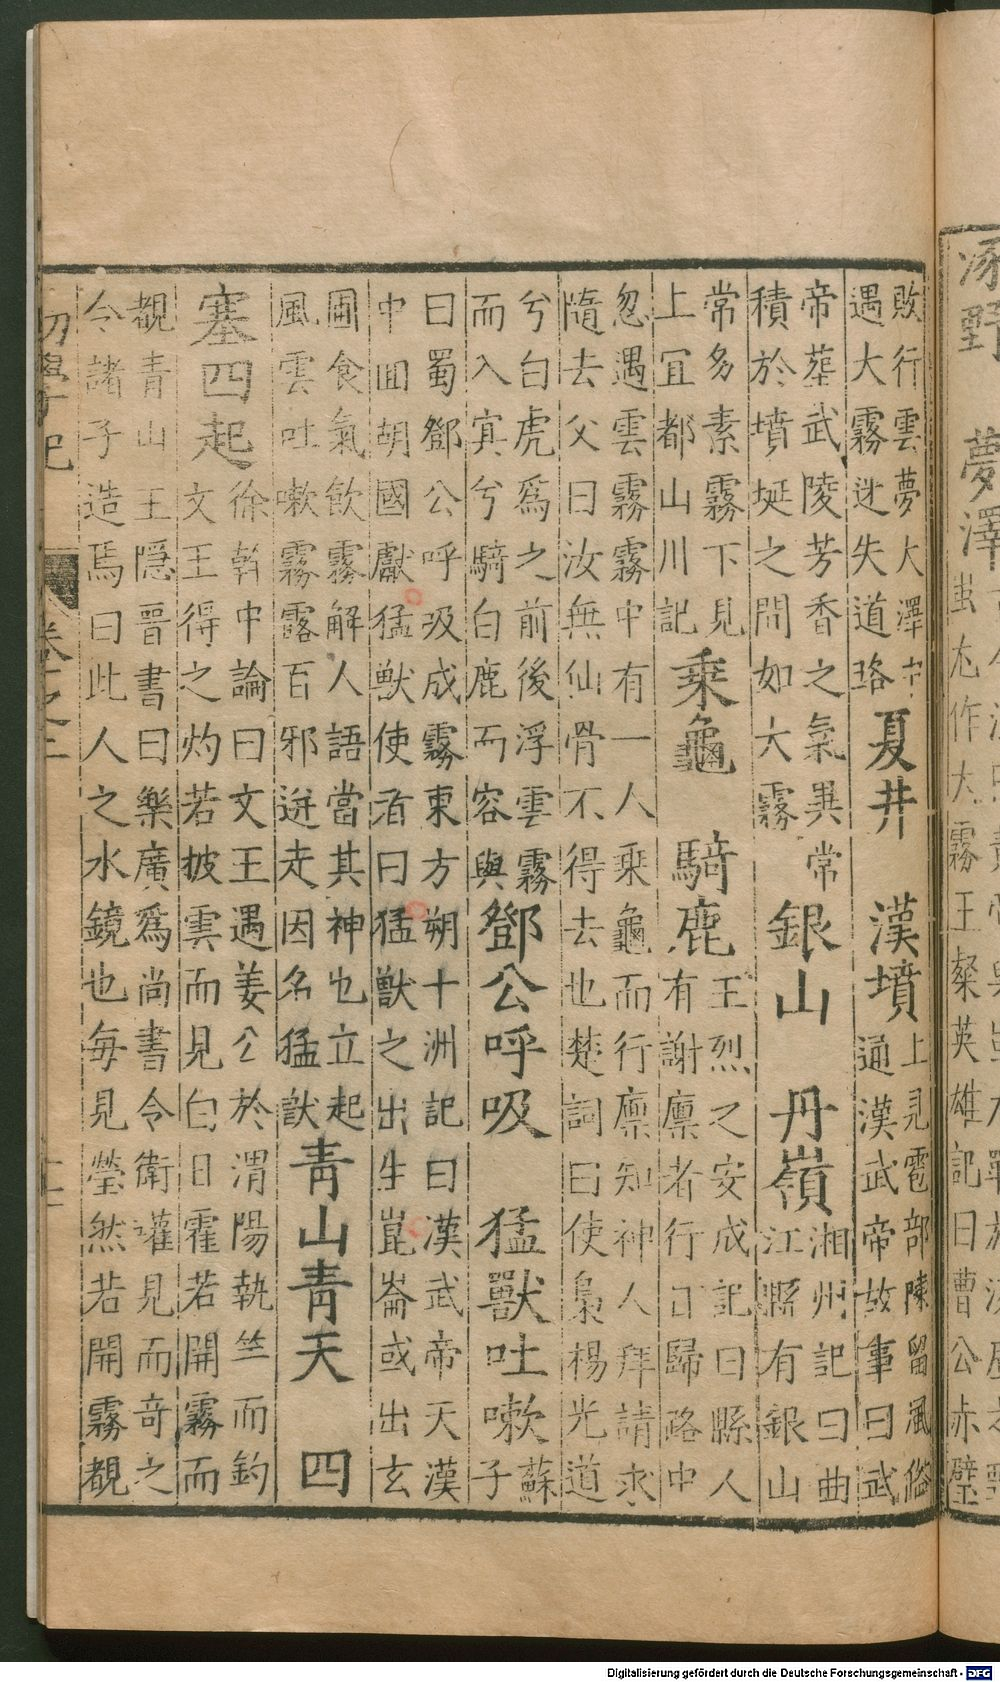 涿野　夢澤
蚩尤作大霧王粲英雄記曰曹公赤壁
敗行雲夢大澤中
遇大霧迷失道路
夏井　漢墳
上見雹部陳留風俗
通漢武帝故事曰武
帝葬武陵芳香之氣異常
積於墳埏之間如大霧
銀山　丹嶺
湘州記曰曲
江縣有銀山
常多素霧下見
上宜都山川記
乘龜　騎鹿
王烈之安成記曰縣人
有謝廩者行田歸路中
忽遇雲霧霧中有一人乘龜而行廩知神人拜請求
隨去父曰汝無仙骨不得去也楚詞曰使梟楊先道
兮白虎爲之前後浮雲霧
而入㝠兮騎白鹿而容與
鄧公呼吸　猛獸吐嗽
蘇
子
曰蜀鄧公呼吸成霧東方朔十洲記曰漢武帝天漢
中囬胡國獻猛獸使者曰猛獸之出生崑崙或出玄
圃食氣飲霧解人語當其神也立起
風雲吐嗽霧露百邪迸走因名猛獸
青山青天　四
塞四起
徐幹中論曰文王遇姜公於渭陽執竺而釣
文王得之灼若披雲而見白日霍若開霧而
覩青山王隱晉書曰樂廣爲尚書令衛瓘見而奇之
令諸子造焉曰此人之水鏡也每見瑩然若開霧覩
初學記　卷之二
Digitalisierung gefördert durch die Deutsche Forschungsgemeinschaft - DFG